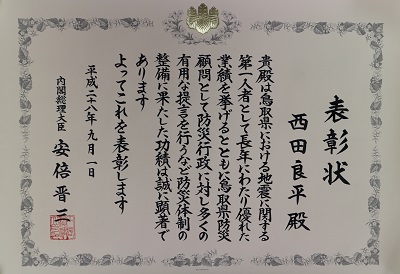 表彰状
西田良平殿
貴殿は鳥取県における地震に関する
第一人者として長年にわたり優れた
業績を挙げるとともに鳥取県防災
顧問として防災行政に対し多くの
有用な提言を行うなど防災体制の
整備に果たした功績は誠に顕著で
あります
よってこれを表彰します
平成二十八年九月一日
内閣総理大臣 安倍晋三